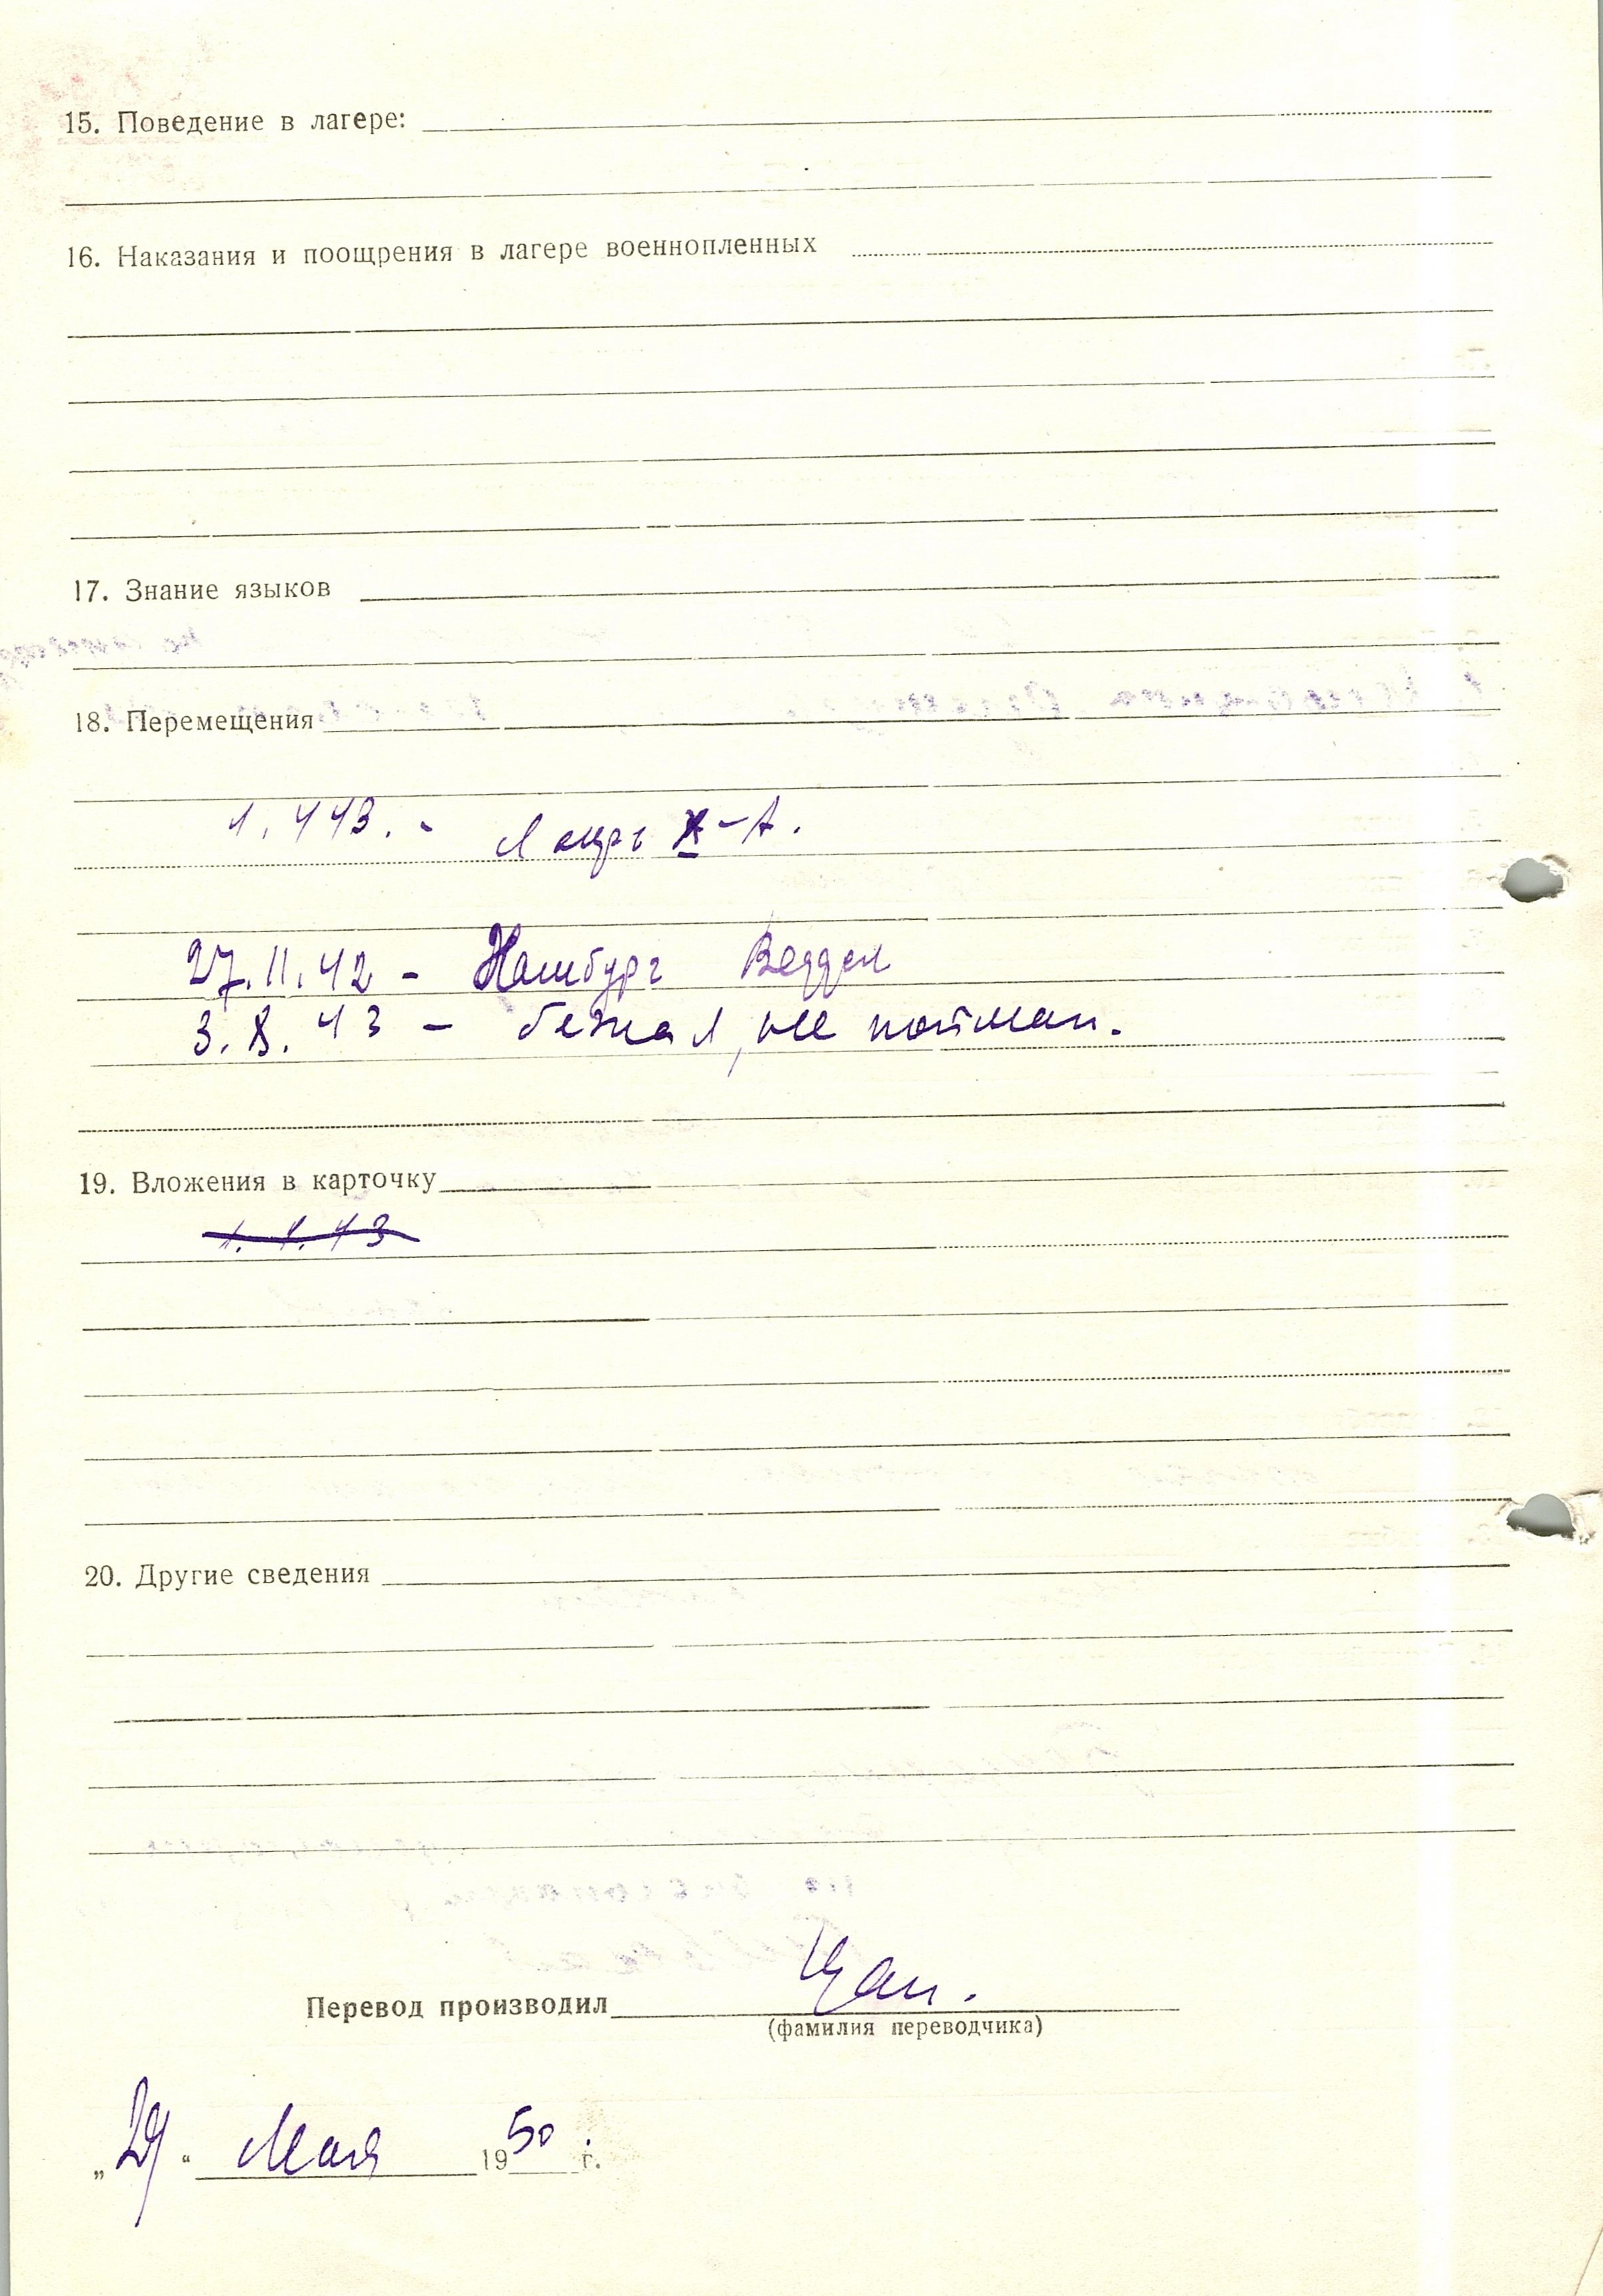 15. Поведение в лагере:
16. Наказания и поощрения в лагере военнопленных
17. Знание языков
18. Перемещения
1. 4 43. - Лагерь X-А.
27.11.42 - Гамбург Веддел
3.8.43 - бежал, не пойман.
19. Вложения в карточку
20. Другие сведения
Перевод производил
(фамилия переводчика)
„29“ Мая 1950 г.